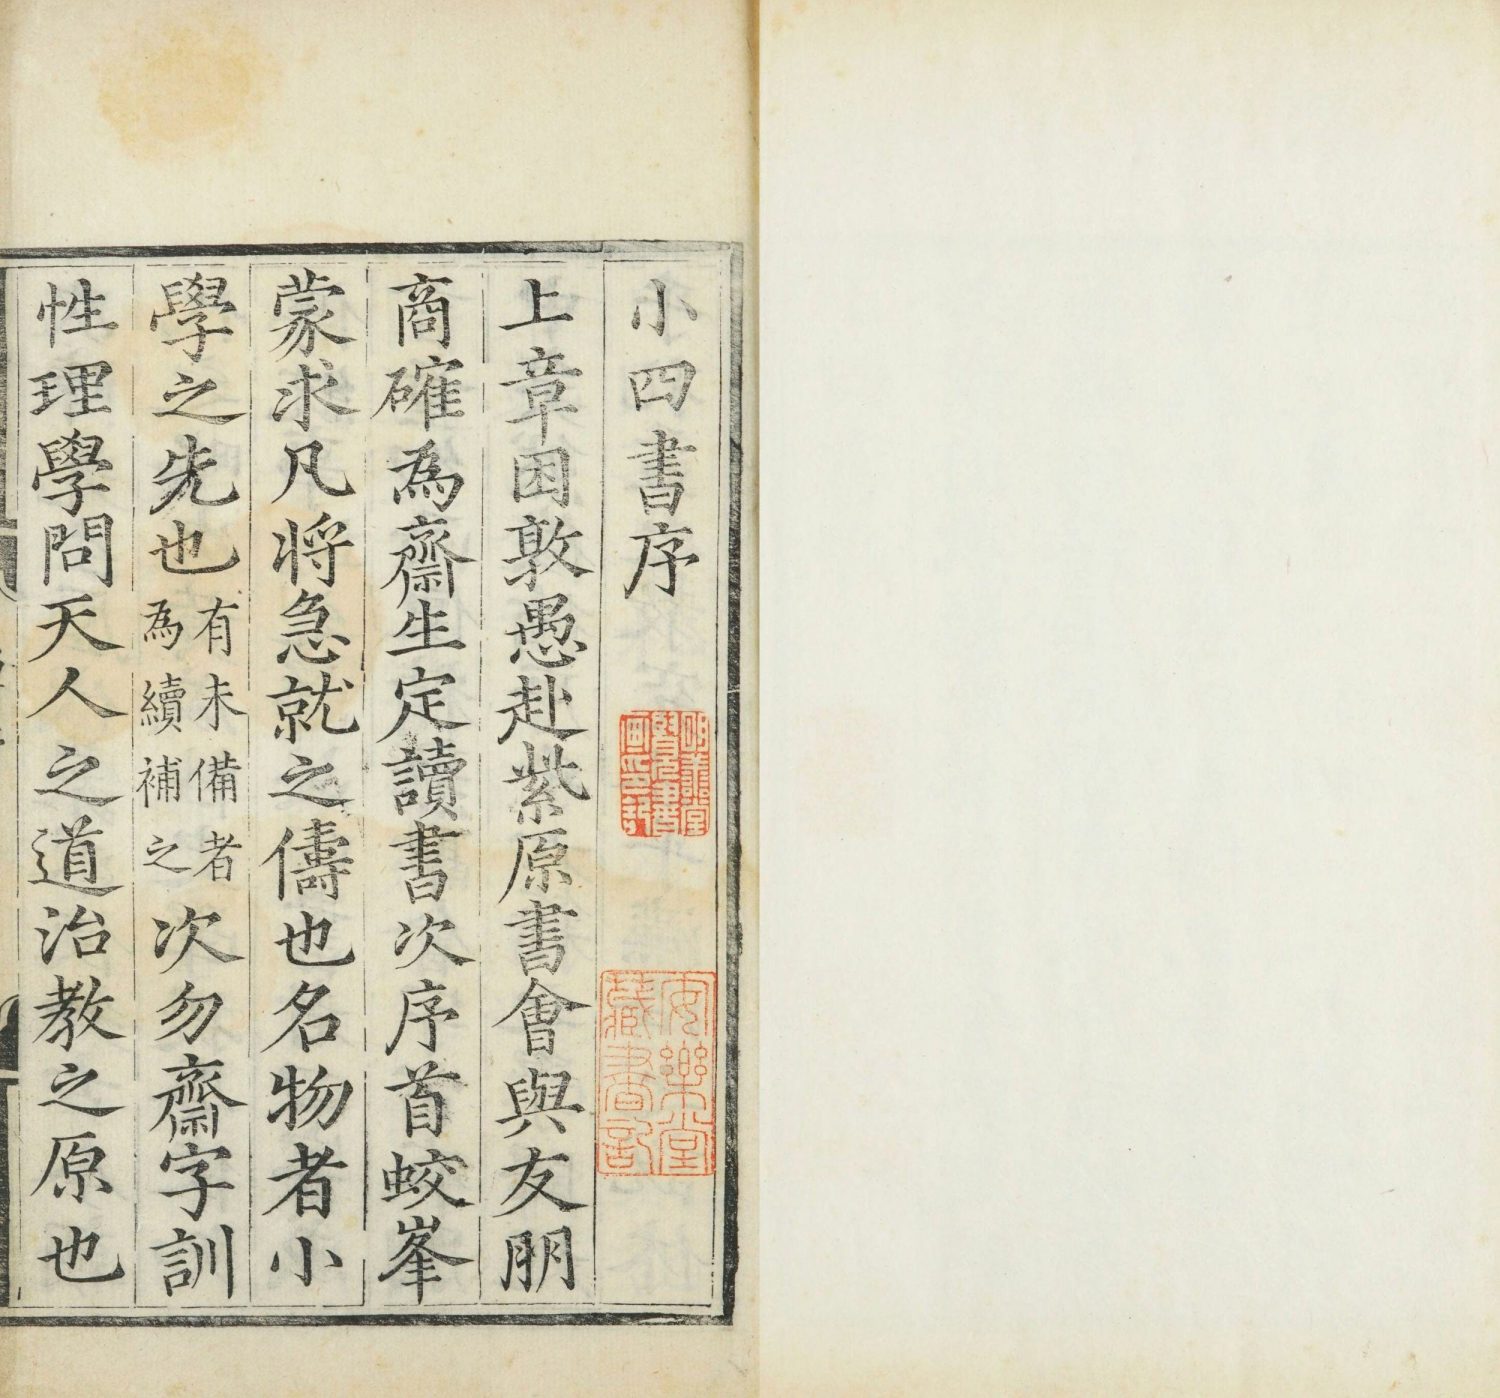 小四書序
明善堂
覽書
畫印記
安樂堂
藏書記
上章困敦愚赴紫原書會與友朋
商確為齋生定讀書次序首蛟峯
蒙求凡将急就之儔也名物者小
學之先也有未備者為續補之次勿齋字訓
性理學問天人之道治教之原也